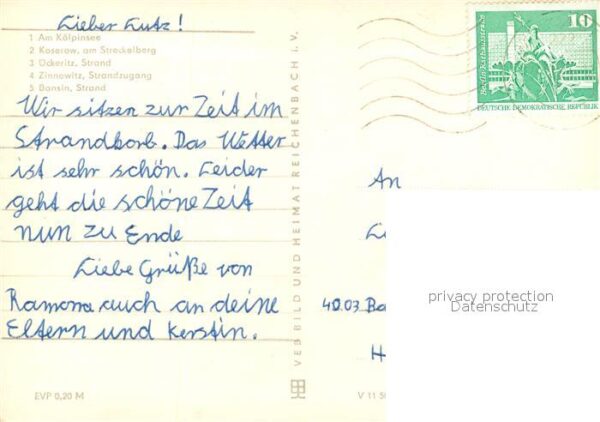 Lieber Lutz!
1 Am Kölpinsee
2 Koserow, am Streckelberg
3 Ückeritz, Strand
4 Zinnowitz, Strandzugang
5 Bansin, Strand
Wir sitzen zur Zeit im
Strandkorb. Das Wetter
ist sehr schön. Leider
geht die schöne Zeit
nun zu Ende
Liebe Grüße von
Ramona auch an deine
Eltern und Kerstin.
EVP 0,20 M
VEB BILD UND HEIMAT REICHENBACH I. V.
Berlin, Rathausstraße
10
DEUTSCHE DEMOKRATISCHE REPUBLIK
An
privacy protection
Datenschutz
V 11 50
H